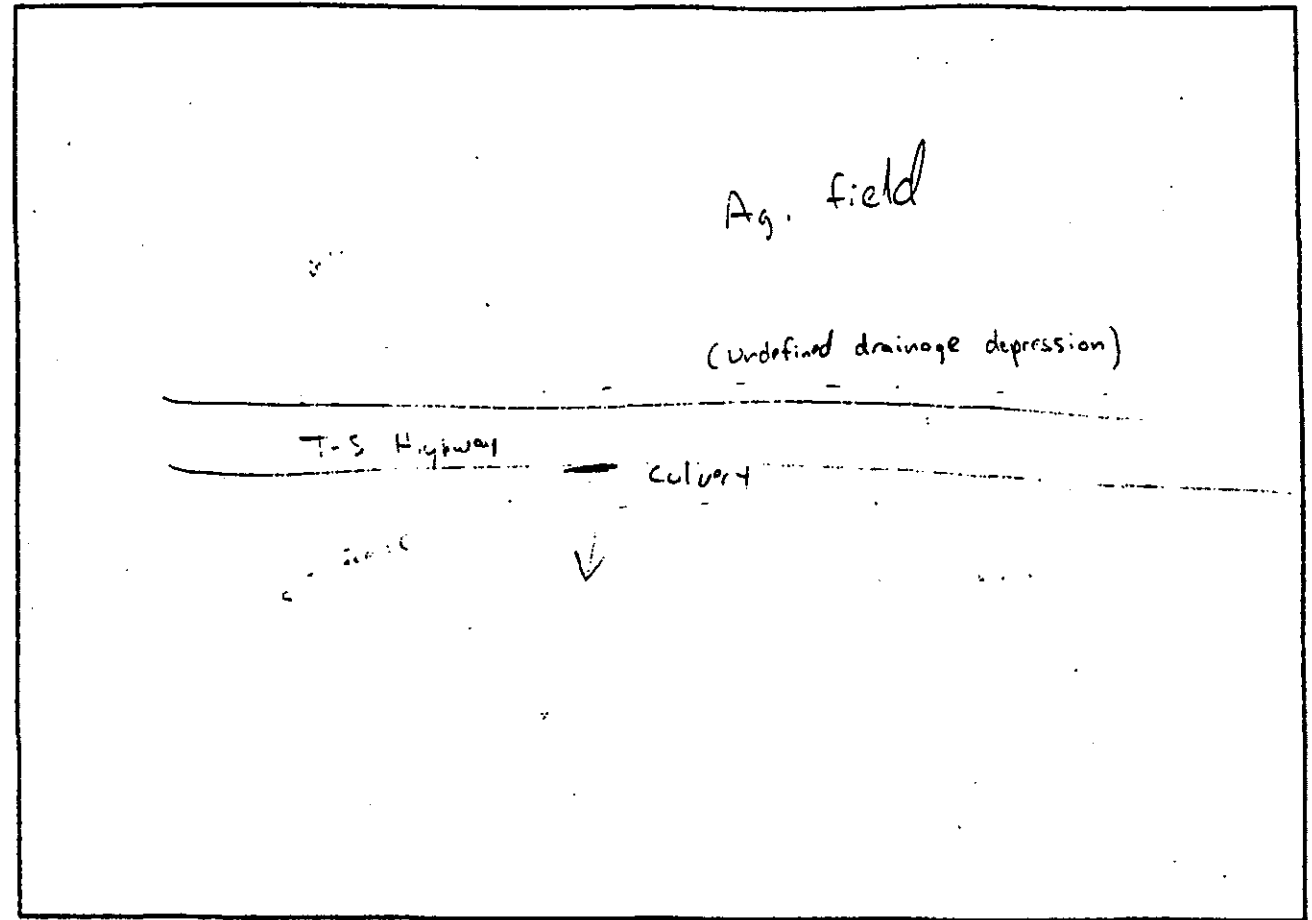 Ag. field
(undefined drainage depression)
T-S Highway
Culvert